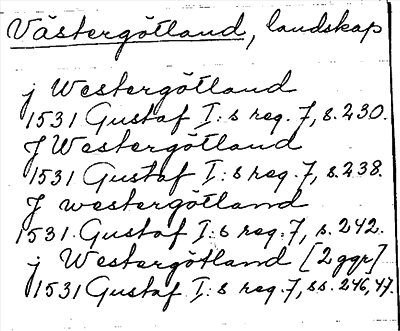 Västergötland, landskap
j Westergötland
1531 Gustaf I:s reg. 7, s. 230.
J Westergötland
1531 Gustaf I:s reg. 7, s. 238.
J westergötland
1531 Gustaf I:s reg. 7, s. 242.
j Westergötland [2 ggr]
1531 Gustaf I:s reg. 7, ss. 246, 47.